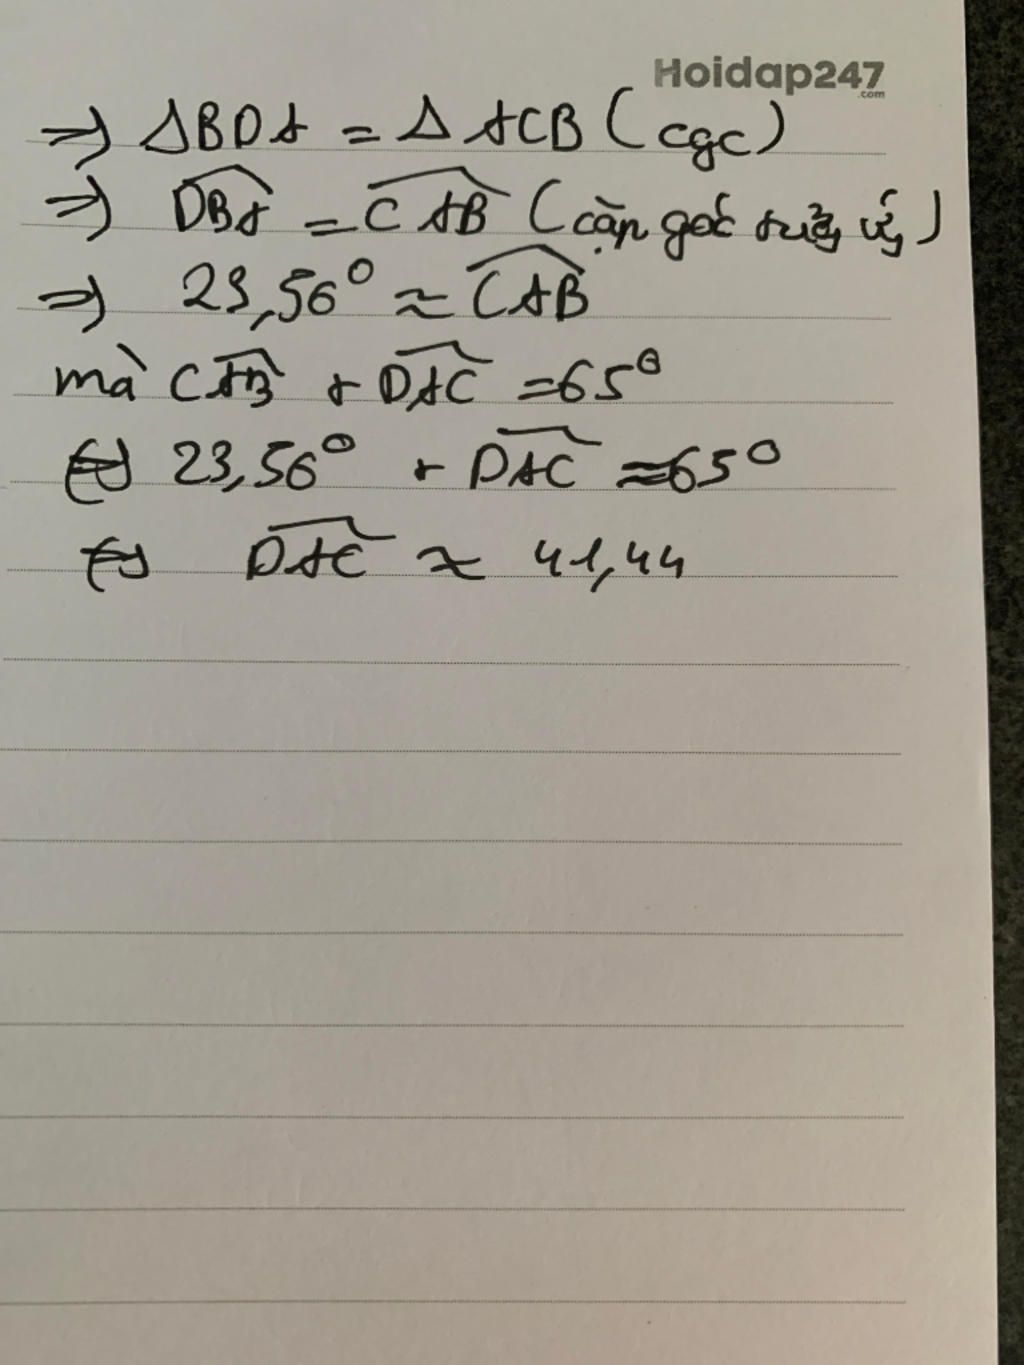 Hoidap247
.com
=> ΔBDA = Δ ACB (cgc)
=> DBA = CAB (cặp góc tương ứng)
=> 23,56° ≈ CAB
mà CAB + DAC = 65°
<=> 23,56° + DAC ≈ 65°
<=> DAC ≈ 41,44